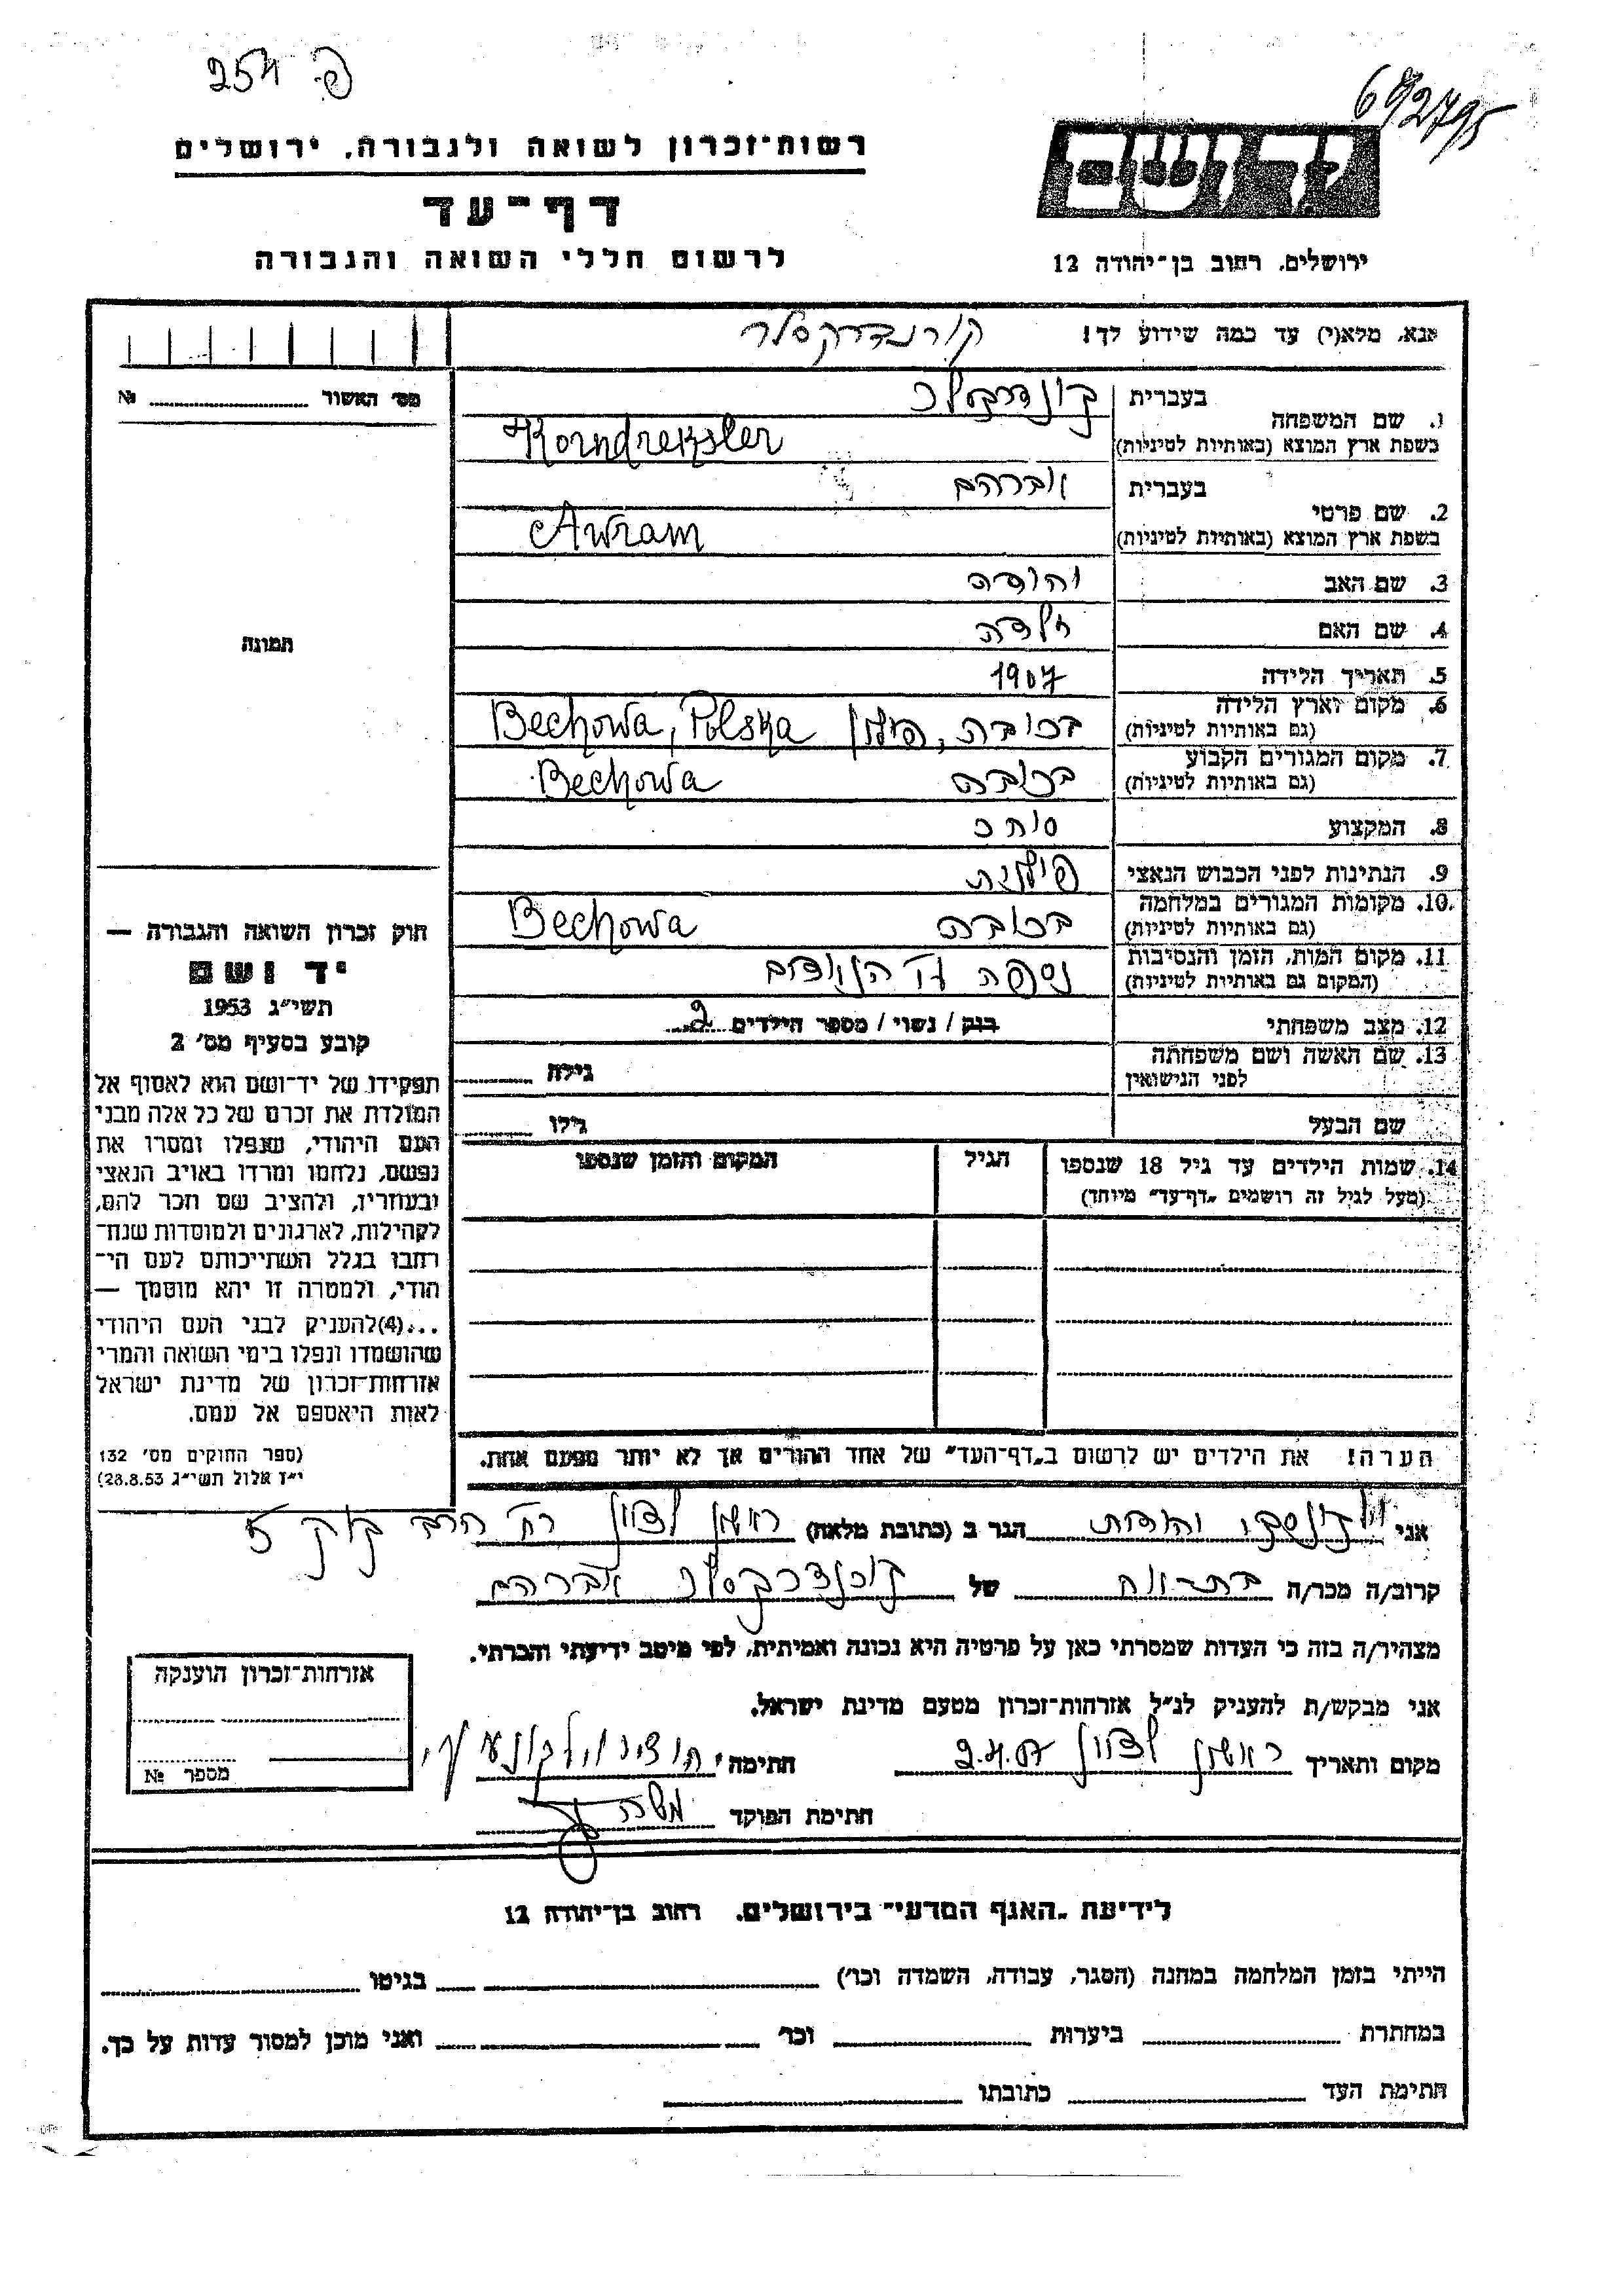 254 פ.
692795
רשות-זכרון לשואה ולגבורה, ירושלים
דף-עד
לרשום חללי השואה והגבורה
יד ושם
ירושלים, רחוב בן-יהודה 12
אנא, מלא(י) עד כמה שידוע לך! קורנדרקסלר
מס' האשור № 
1. שם המשפחה בעברית
בשפת ארץ המוצא (באותיות לטיניות) Korndreksler
2. שם פרטי בעברית אברהם
בשפת ארץ המוצא (באותיות לטיניות) Awram
3. שם האב יהודה
4. שם האם
5. תאריך הלידה 1907
6. מקום וארץ הלידה (גם באותיות לטיניות) בכובה, פולין Bechowa, Polska
7. מקום המגורים הקבוע (גם באותיות לטיניות) בכובה Bechowa
8. המקצוע סוחר
9. הנתינות לפני הכבוש הנאצי פולנית
10. מקומות המגורים במלחמה (גם באותיות לטיניות) בכובה Bechowa
11. מקום המות, הזמן והנסיבות (המקום גם באותיות לטיניות) נספה
12. מצב משפחתי רווק / נשוי / מספר הילדים 2
13. שם האשה ושם משפחתה לפני הנישואין גילה
שם הבעל גילו
14. שמות הילדים עד גיל 18 שנספו הגיל המקום והזמן שנספו
(מעל לגיל זה רושמים „דף-עד" מיוחד)
הערה! את הילדים יש לרשום ב„דף-העד" של אחד ההורים אך לא יותר מפעם אחת.
תמונה
חוק זכרון השואה והגבורה —
יד ושם
תשי"ג 1953
קובע בסעיף מס' 2
תפקידו של יד-ושם הוא לאסוף אל
המולדת את זכרם של כל אלה מבני
העם היהודי, שנפלו ומסרו את
נפשם, נלחמו ומרדו באויב הנאצי
ובעוזריו, ולהציב שם וזכר להם,
לקהילות, לארגונים ולמוסדות שנח-
רבו בגלל השתייכותם לעם הי-
הודי, ולמטרה זו יהא מוסמך —
...(4) להעניק לבני העם היהודי
שהושמדו ונפלו בימי השואה והמרי
אזרחות-זכרון של מדינת ישראל
לאות היאספם אל עמם.
(ספר החוקים מס' 132
י"ז אלול תשי"ג 28.8.53)
אני יהודית הגר ב (כתובת מלאה) ראשון לציון רח' הרב קוק 5
קרוב/ה מכר/ה של קורנדרקסלר אברהם
מצהיר/ה בזה כי העדות שמסרתי כאן על פרטיה היא נכונה ואמיתית, לפי מיטב ידיעתי והכרתי.
אני מבקש/ת להעניק לנ"ל אזרחות-זכרון מטעם מדינת ישראל.
מקום ותאריך ראשון לציון חתימה
חתימת הפוקד משה
אזרחות-זכרון הוענקה
מספר №
לידיעת „האגף המדעי" בירושלים, רחוב בן-יהודה 12
הייתי בזמן המלחמה במחנה (הסגר, עבודה, השמדה וכו') בגיטו
במחתרת ביערות וכו' ואני מוכן למסור עדות על כך.
חתימת העד כתובתו